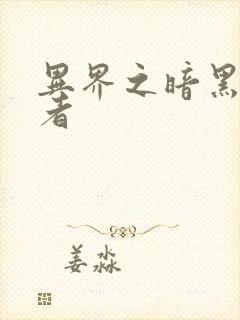 异界之暗黑
者
姜淼